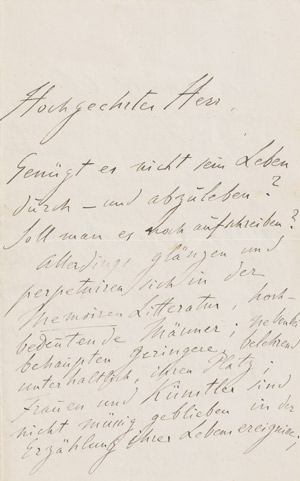 Hochgeehrter Herr,
Genügt es nicht sein Leben
durch – und abzuleben?
Soll man es noch aufschreiben?
Allerdings glänzen und
perpetuiren sich in der
Memoiren Litteratur, hoch-
bedeutende Männer; nebenbei
behaupten geringere, belehrend
unterhaltlich, ihren Platz;
Frauen und Künstler sind
nicht müssig geblieben in der
Erzählung ihrer Lebensereignisse;